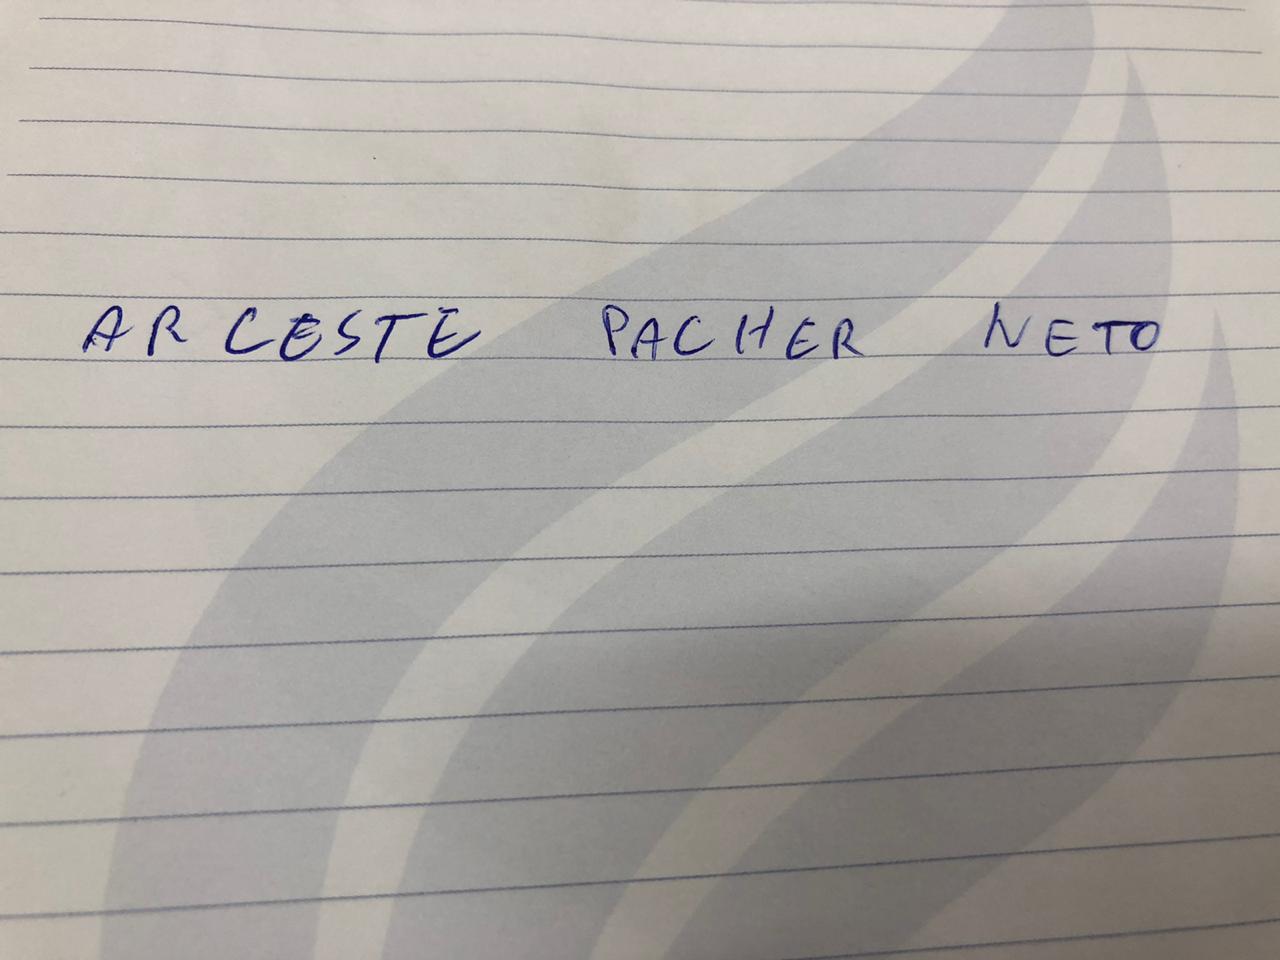 ARCESTE PACHER NETO